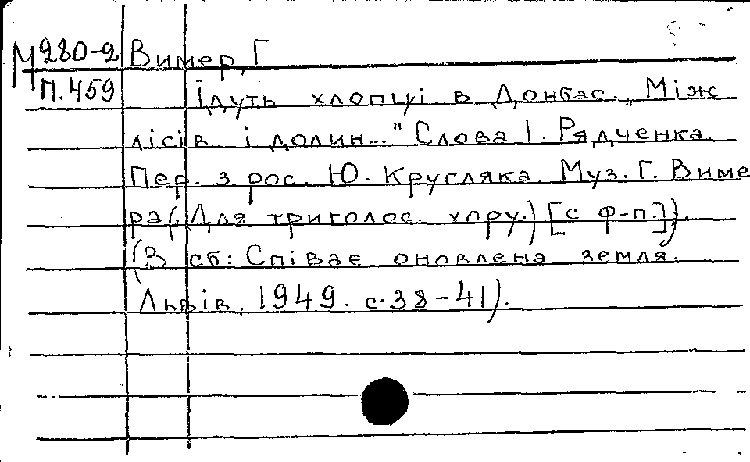 М280-2 Вимер, Г
П.459 Їдуть хлопці в Донбас. „Між
лісів і долин..." Слова І. Рядченка.
Пер. з рос. Ю. Кругляка. Муз. Г. Виме
ра (Для триголос. хору.) [с ф-п.])
(В сб: Співає оновлена земля.
Львів, 1949. с.38-41).